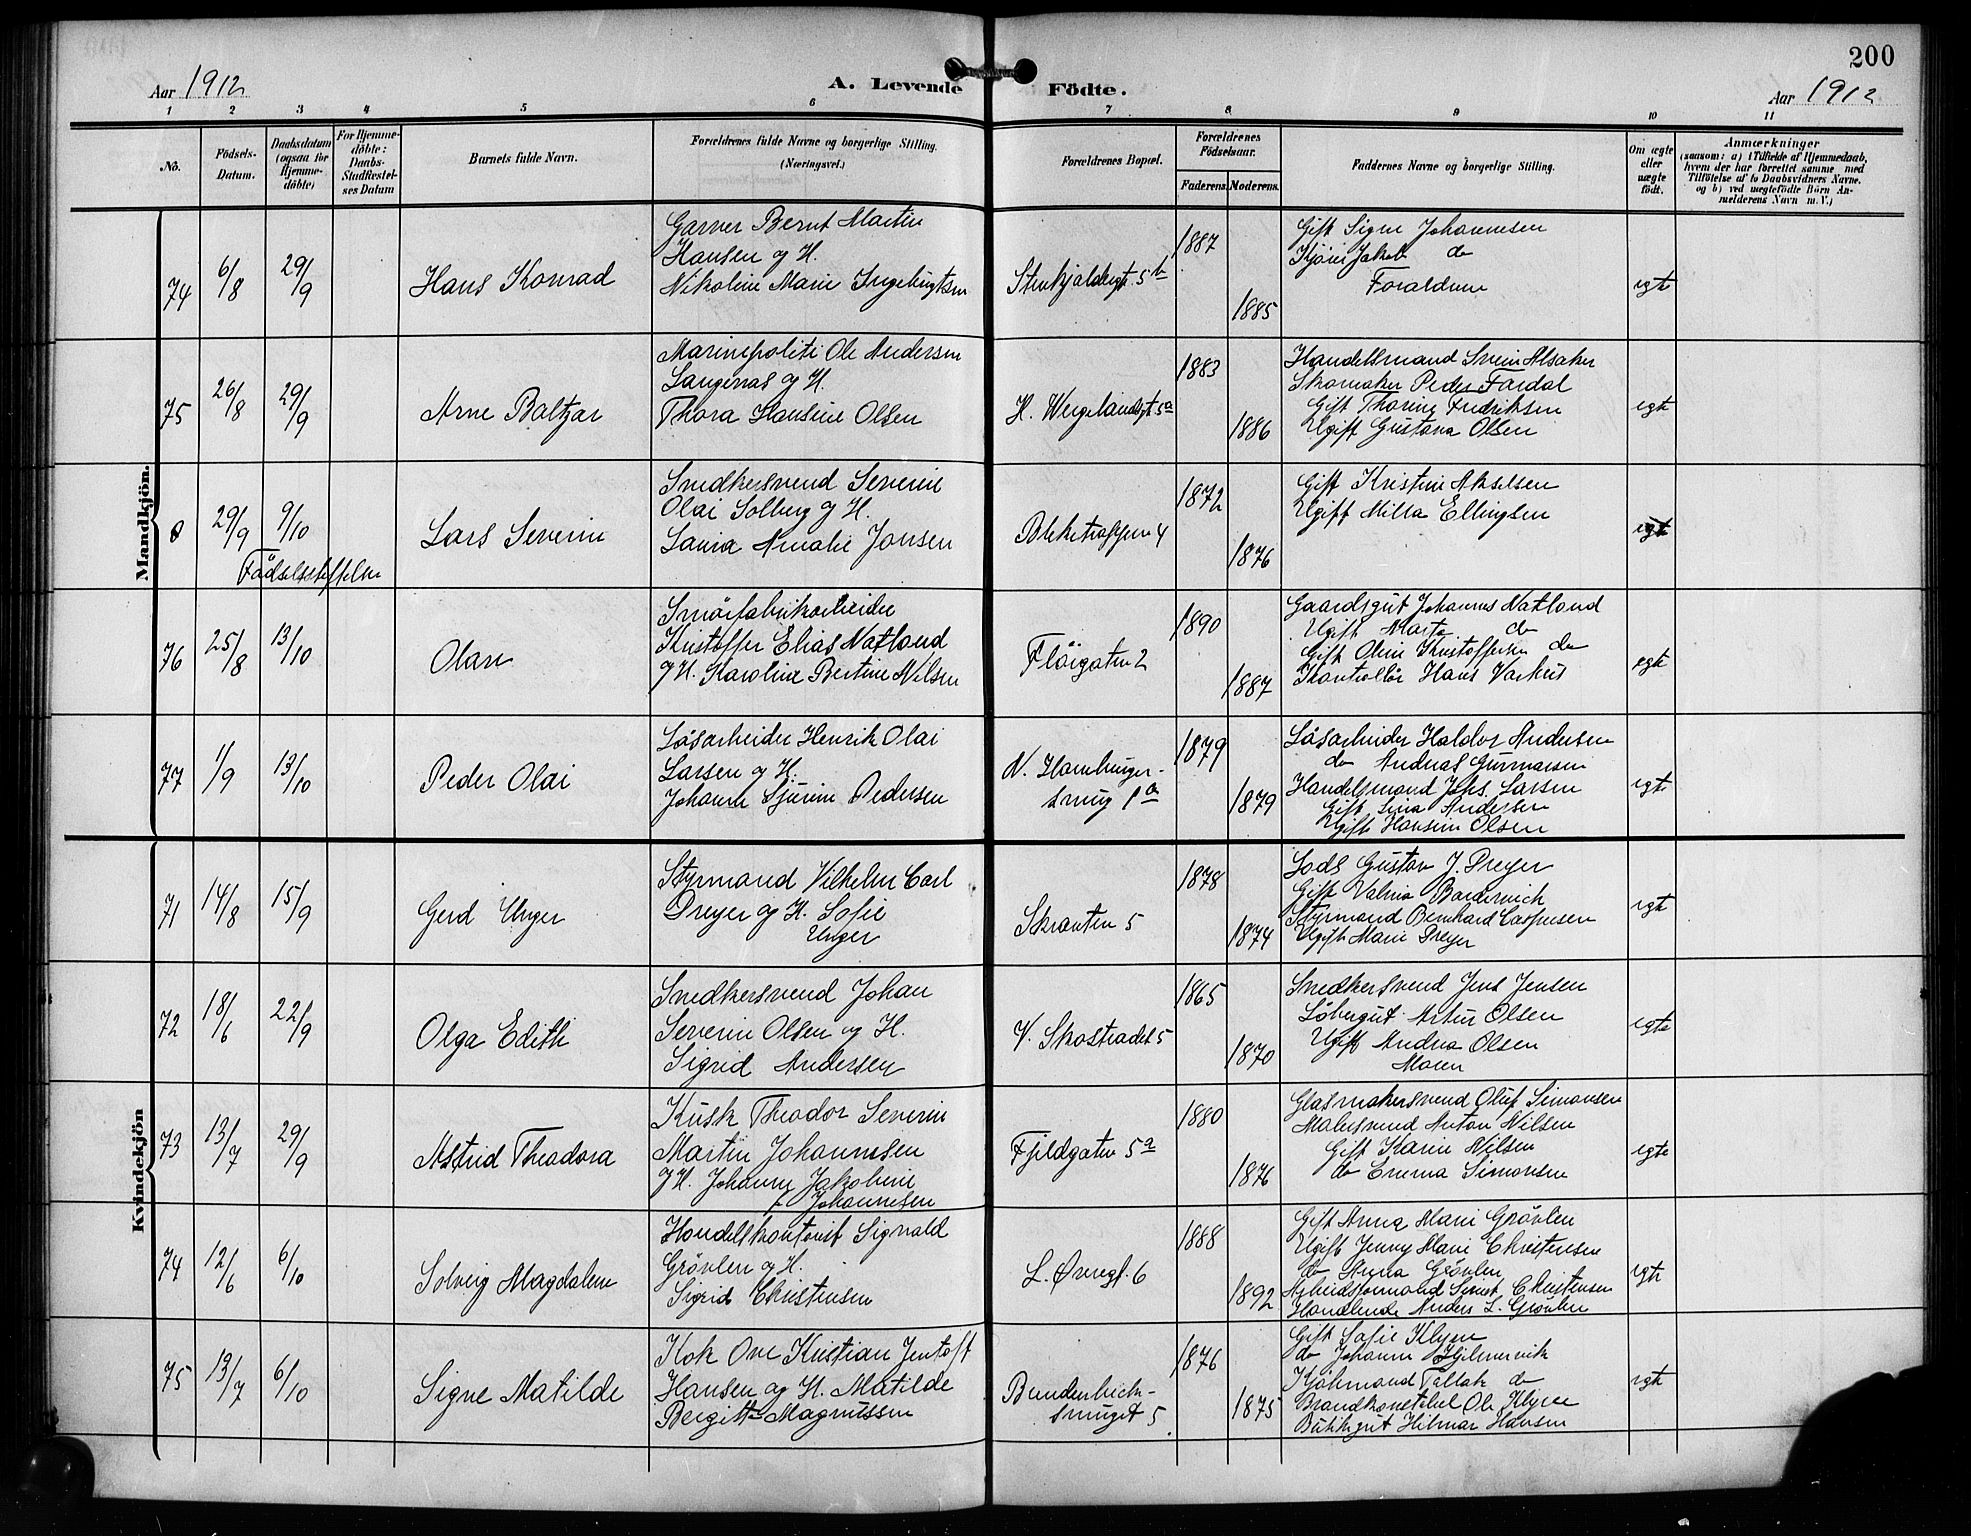 200
Aar 1912
A. Levende Födte.
Aar 1912
1 2 3 4 5 6 7 8 9 10 11
No.
Födsels-
Datum.
Daabsdatum
(ogsaa for
Hjemme-
döbte)
For Hjemme-
döbte:
Daabs-
Stadfæstel-
ses Datum
Barnets fulde Navn.
Forældrenes fulde Navne og borgerlige Stilling.
(Næringsvei.)
Forældrenes Bopæl.
Forældrenes
Födselsaar.
Faderens. Moderens.
Faddernes Navne og borgerlige Stilling.
Om ægte
eller
uægte
født.
Anmærkninger
(saasom: a) i Tilfælde af Hjemmedaab,
hvem der har forrettet samme med
Tilföielse af to Daabsvidners Navne.
og b) ved uægtefödte Börn An-
melderens Navn m. V.)
Mandkjön.
74 6/8 29/9
Hans Konrad
Garver Bernt Martin
Hansen og H.
Nikoline Marie Ingebrigtsen
5b
1887
1885
Gift Signe Johannesen
Jakob do
Forældrene
egte
75 26/8 29/9
Arne Baltzar
Marinepoliti Ole Andersen
Langenæs og H.
Thora Hansine Olsen
H. Wergelandsgt 5a
1883
1886
Handelsmand Svein Alsaker
Skomaker Peder Fardal
Gift Thorine Fredriksen
Ugift Gustava Olsen
egte
0 29/9 9/10
Födselsstiftelsen
Lars Severin
Snedkersvend Severin
Olai Solberg og H.
Lavia Amalie Jonsen
4
1872
1876
Gift Kristine Akselsen
Ugift Milla Ellingsen
egte
76 25/8 13/10
Olav
Smörfabrikarbeider
Kristoffer Elias Natland
og H. Karoline Bertine Nilsen
Flöigaten 2
1890
1887
Gaardsgut Johannes Natland
Ugift Marta do
Gift Oline Kristoffersen do
Kontrollör Hans
egte
77 1/9 13/10
Peder Olai
Lösarbeider Henrik Olai
Larsen og H.
Johanne Sjurine Pedersen
N. Hamburger-
smug 1a
1879
1879
Lösarbeider Haldor Andersen
do Andreas Gunnarsen
Handelsmand Johs. Larsen
Gift Lina Andersen
Ugift Hansine Olsen
egte
Kvindekjön
71 14/8 15/9
Gerd Unger
Styrmand Vilhelm Carl
Dreyer og H. Sofie
Unger
Skranten 5
1878
1874
Lods Gustav J. Dreyer
Gift
Styrmand Bernhard Caspersen
Ugift Marie Dreyer
egte
72 18/6 22/9
Olga Edith
Snedkersvend Johan
Severin Olsen og H.
Sigrid Andersen
V. Skostrædet 5
1865
1870
Snedkersvend Jens Jensen
Löbergut Artur Olsen
Ugift Andrea Olsen
Moren
egte
73 13/7 29/9
Astrid Theodora
Kusk Theodor Severin
Martin Johannesen
og H. Johanne Jakobine
f. Johannesen
Fjeldgaten 5a
1880
1876
Glasmakersvend Oluf Simonsen
Malersvend Anton Nilsen
Gift Karin Nilsen
do Emma Simonsen
egte
74 12/6 6/10
Solveig Magdalene
Handelskontorist Sigvald
Grövlen og H.
Sigrid Christensen
L. Øvregt. 6
1888
1892
Gift Anna Marie Grövlen
Ugift Jenny Marie Christensen
do Anna Grövlen
Arbeidsformand Christensen
Handlende Anders L. Grövlen
egte
75 13/7 6/10
Signe Matilde
Kok Ove Kristian Jentoft
Hansen og H. Matilde
Bergitte Magnussen
smuget 5
1876
1875
Gift Sofie Klyve
do Johanne Hjelmervik
Kjöbmand Tallak do
Brandkonstabel Ole Klyve
Butikgut Hilmar Hansen
egte